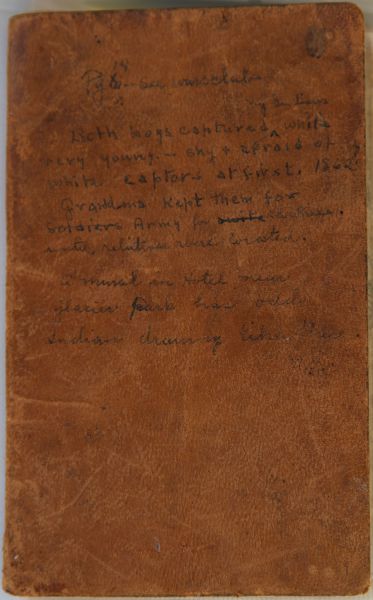 14
Pg
by In laws
Both boys captured ^ while
very young. – shy + afraid of
white captors at first. 1862
Grandma kept them for
Soldiers Army for
until relatives were located.
A mural in Hotel near
glacier park has odd
Indian drawing like